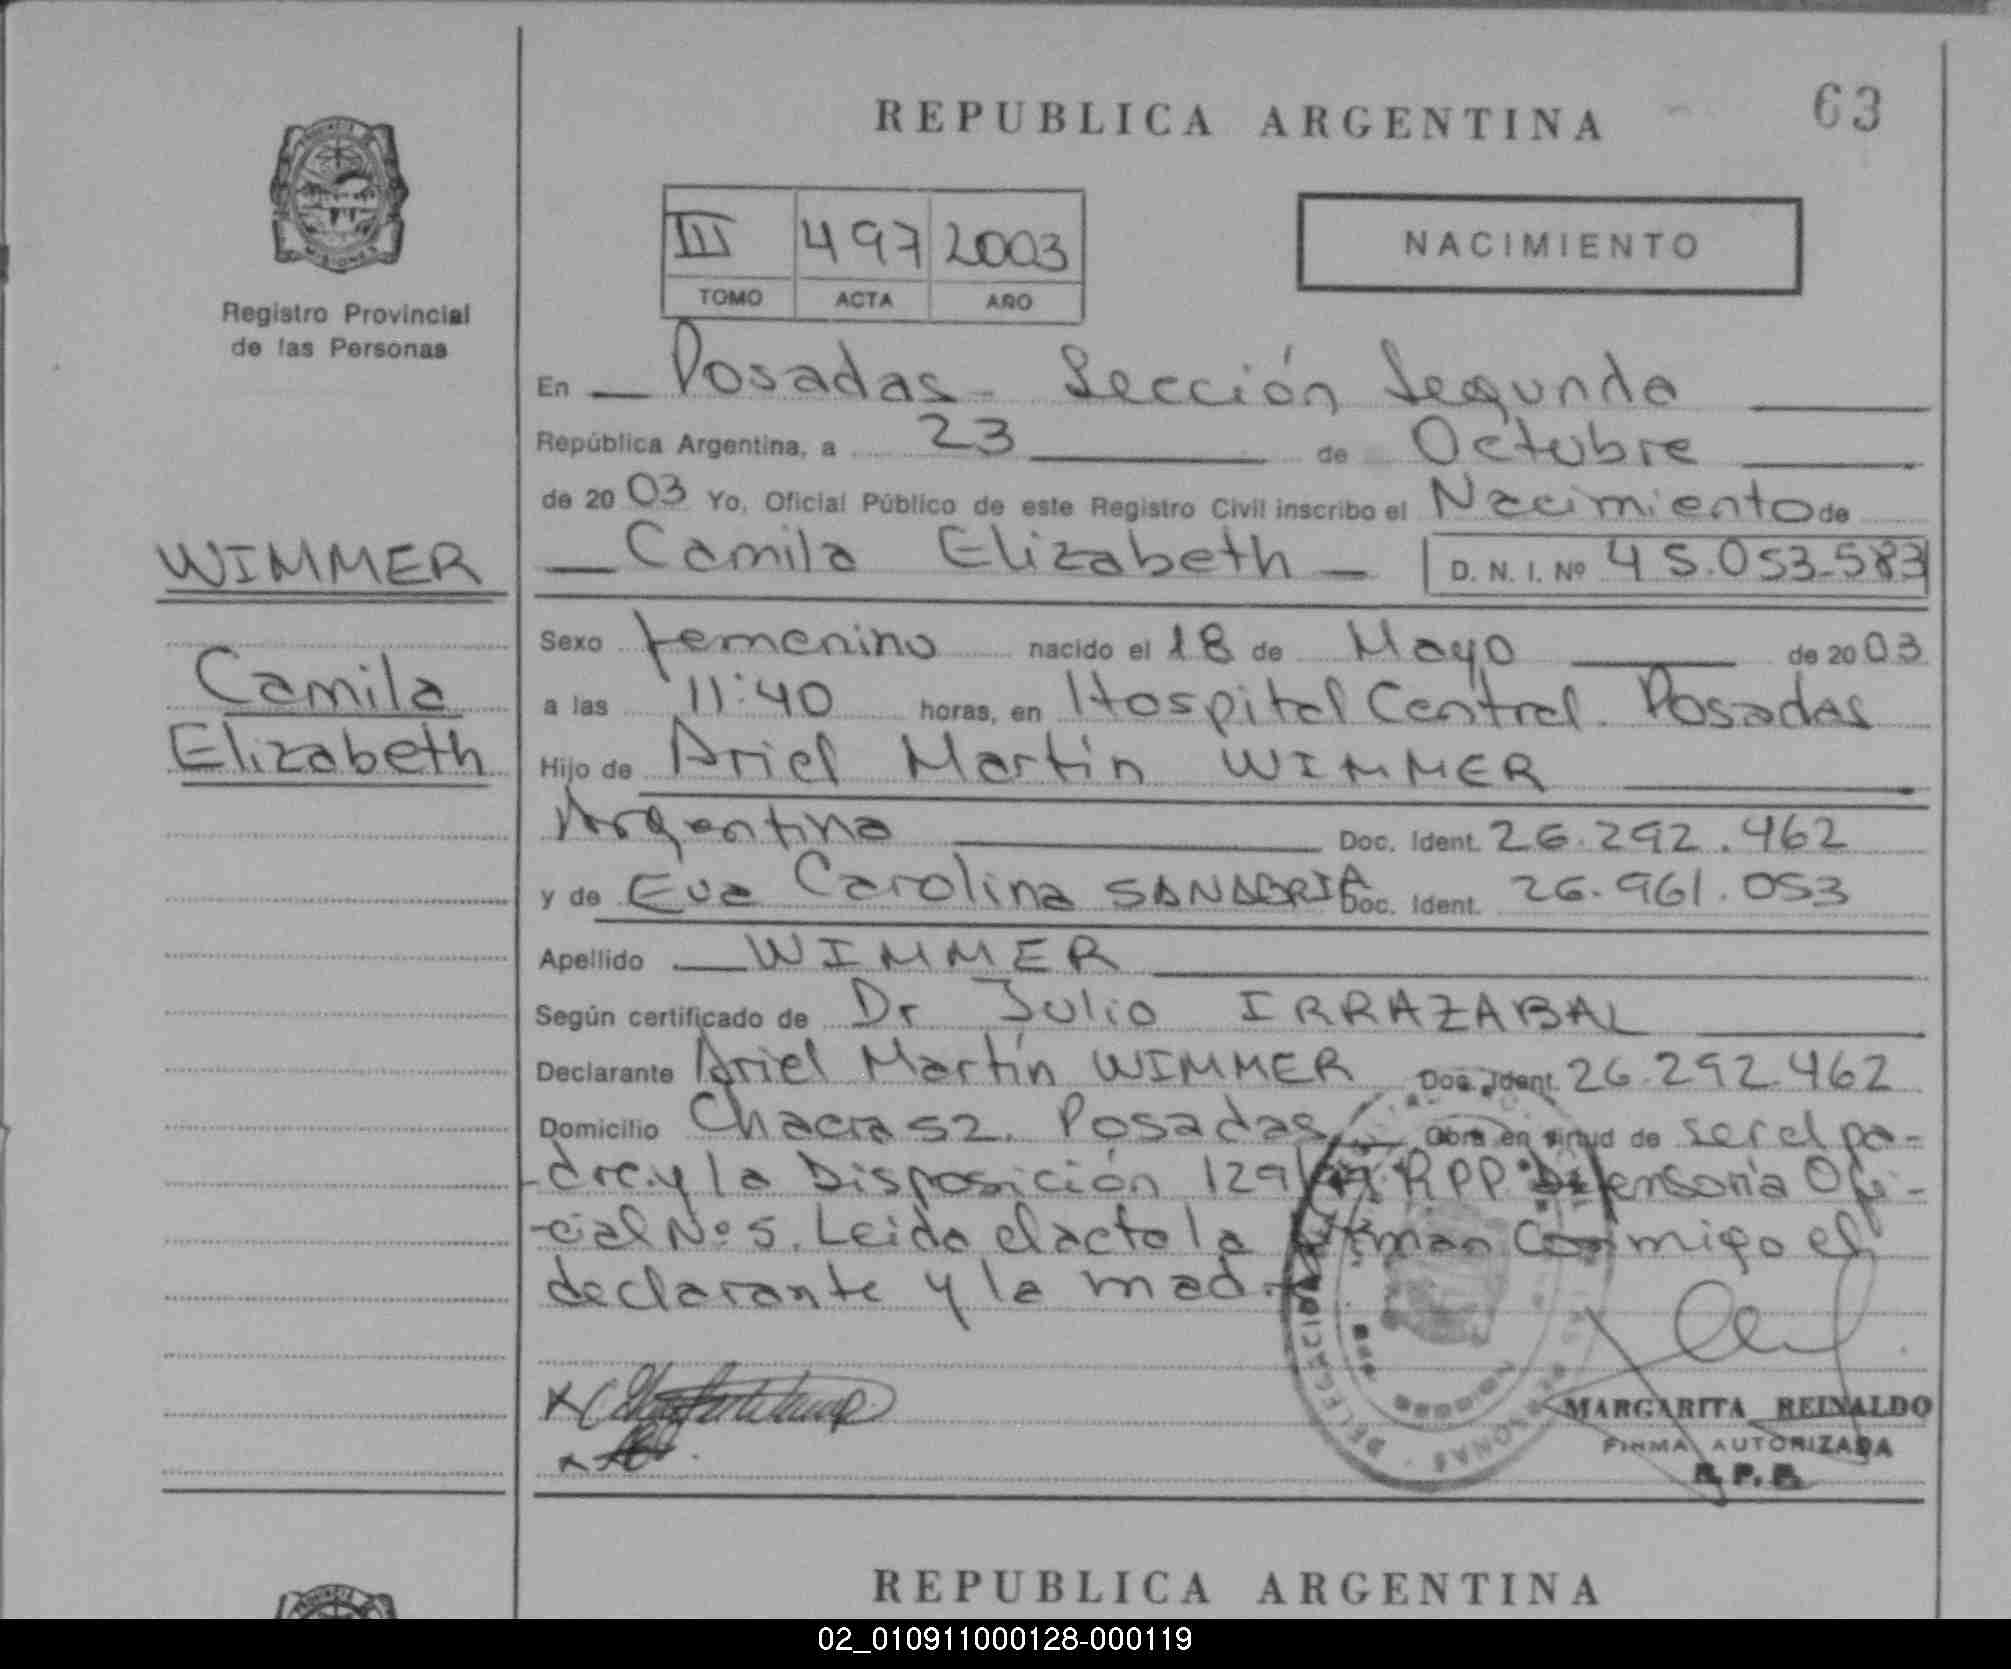 REPUBLICA ARGENTINA
63
III 497 2003
TOMO ACTA AÑO
NACIMIENTO
Registro Provincial
de las Personas
En Posadas - Sección Segunda
República Argentina, a 23 de Octubre
de 2003 Yo, Oficial Público de este Registro Civil inscribo el Nacimiento de
WIMMER
Camila Elizabeth D. N. I. Nº 45.053.583
Sexo femenino nacido el 18 de Mayo de 2003
Camila
a las 11:40 horas, en Hospital Central. Posadas
Elizabeth
Hijo de Ariel Martín WIMMER
Argentina Doc. Ident. 26.292.462
y de Eva Carolina SANABRIA Doc. Ident. 26.961.053
Apellido WIMMER
Según certificado de Dr Julio IRRAZABAL
Declarante Ariel Martín WIMMER Doc. Ident. 26.292.462
Domicilio Chacra 52. Posadas Obra en virtud de ser el pa-
-dre y la Disposición 129 RPP Defensoría Ofi-
-cial Nº 5. Leída el acta la firman conmigo el
declarante y la madre
MARGARITA REINALDO
FIRMA AUTORIZADA
R.P.P.
REPUBLICA ARGENTINA
02_010911000128-000119